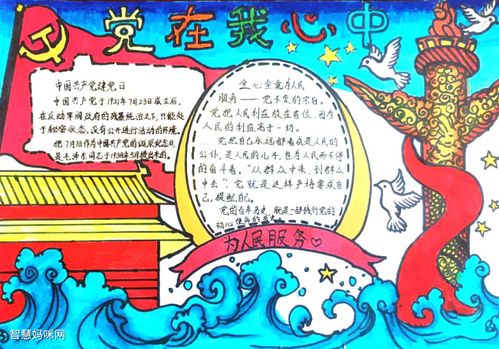 党在我心中
中国共产党建党日
中国共产党于1921年7月23日成立后,
在反动军阀政府的残暴统治之下,只能处
于秘密状态,没有公开进行活动的环境.
把7月1日作为中国共产党的诞辰纪念日,
是毛泽东同志于1938年5月提出来的。
全心全意为人民
服务——党不变的宗旨。
党把人民利益放在首位,因为
人民的利益高于一切。
党把自己永远都看成是人民的
公仆,是人民的儿子,也为人民而不停
的奋斗着,"从群众中来,到群众
中去",党就是这样严格要求自
己,提醒自己。
党的百年历史,就是一部践行党的
初心使命的历史
为人民服务
智慧妈咪网